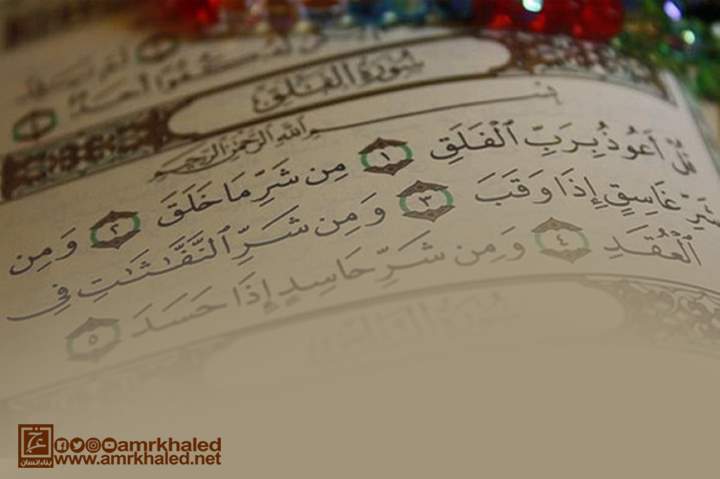 سُورَةُ الْفَلَقِ
بِسْمِ اللَّهِ الرَّحْمَٰنِ الرَّحِيمِ
قُلْ أَعُوذُ بِرَبِّ ٱلْفَلَقِ ١ مِن شَرِّ مَا خَلَقَ ٢ وَمِن
شَرِّ غَاسِقٍ إِذَا وَقَبَ ٣ وَمِن شَرِّ ٱلنَّفَّٰثَٰتِ فِي
ٱلْعُقَدِ ٤ وَمِن شَرِّ حَاسِدٍ إِذَا حَسَدَ ٥
سُورَةُ النَّاسِ
بناء إنسان
amrkhaled
www.amrkhaled.net